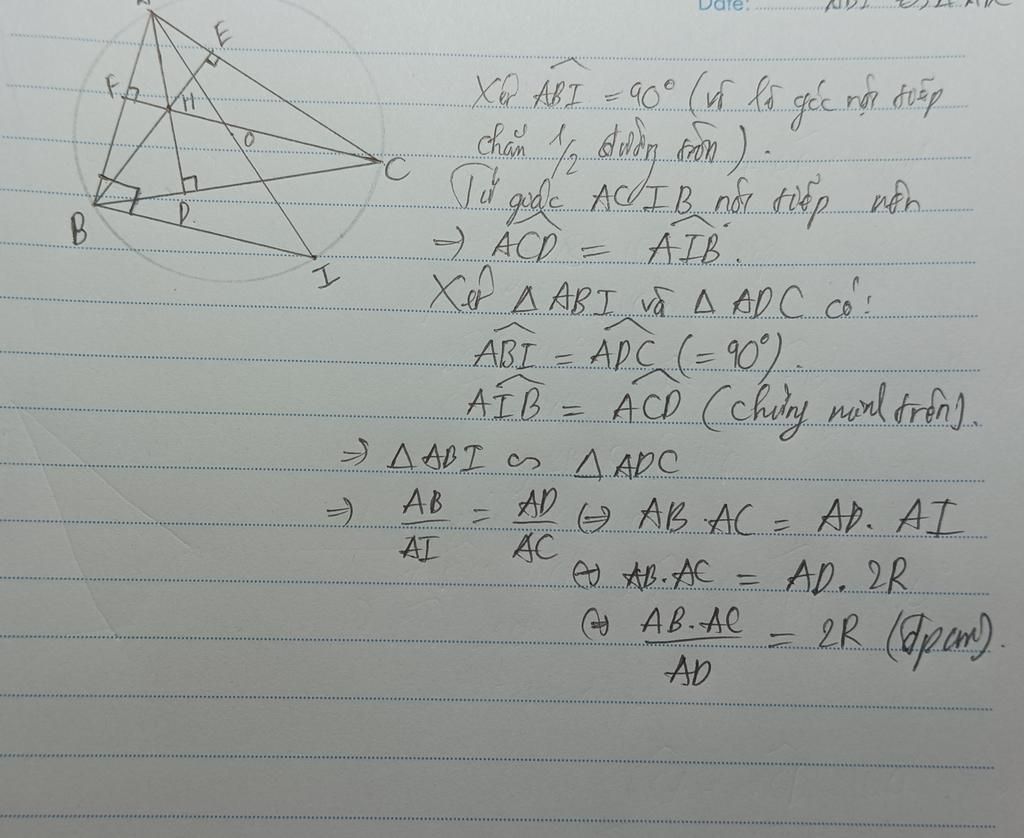 Date:
A
E
F
H
O
C
B
D
I
Xét ABI = 90° (vì là góc nội tiếp
chắn 1/2 đường tròn).
Tứ giác ACIB nội tiếp nên
=> ACD = AIB.
Xét Δ ABI và Δ ADC có:
ABI = ADC (= 90°).
AIB = ACD (chứng minh trên).
=> Δ ABI ∽ Δ ADC
=> AB/AI = AD/AC <=> AB . AC = AD. AI
<=> AB.AC = AD. 2R
<=> AB.AC/AD = 2R (đpcm).